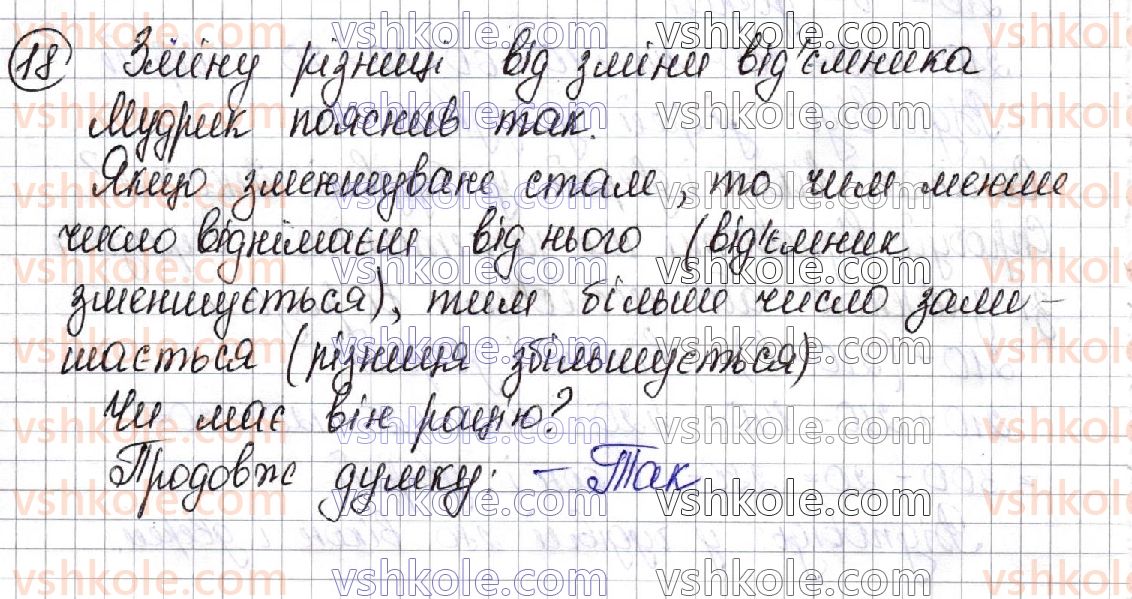 18 Зміну різниці від зміни від'ємника
Мудрик пояснив так.
Якщо зменшуване стале, то чим менше
число віднімаєш від нього (від'ємник
зменшується), тим більше число зали-
шається (різниця збільшується)
Чи має він рацію?
Продовж думку. – Так
vshkole.com